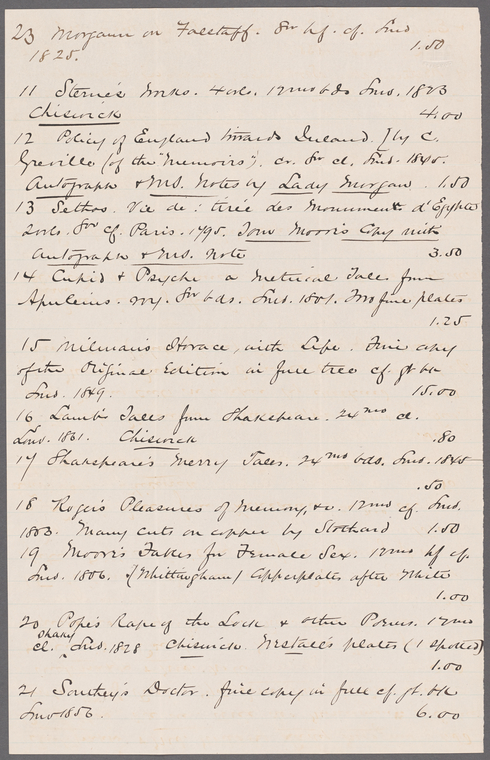 23 Morgann on Falstaff. 8vo hf. cf. Lond
1825. 1.50
11 Sterne's Works. 4 vols. 12mo bds Lond. 1823
Chiswick 4.00
12 Policy of England towards Ireland. [by C.
Greville (of the "Memoirs"). cr. 8vo cl. Lond. 1845.
Autograph & MS. Notes by Lady Morgan. 1.50
13 Sethos. Vie de: tirée des Monuments d'Egypte
2 vols. 8vo cf. Paris. 1795. Tom Moore's Copy with
Autograph & MS. Note 3.50
14 Cupid & Psyche a Metrical Tale from
Apuleius. roy. 8vo bds. Lond. 1801. Two fine plates
1.25
15 Milman's Horace, with Life. Fine copy
of the Original Edition in full tree cf. gt. bk
Lond. 1849. 15.00
16 Lamb's Tales from Shakspeare. 24mo cl.
Lond. 1861. Chiswick .80
17 Shakspeare's Merry Tales. 24mo bds. Lond. 1845
.50
18 Rogers Pleasures of Memory, &c. 12mo cf. Lond.
1803. Many cuts on copper by Stothard 1.50
19 Moore's Fables for Female Sex. 12mo hf cf.
Lond. 1806. [Whittingham] Copperplates after White
1.00
20 Pope's Rape of the Lock & other Poems. 12mo
cl. shaky Lond. 1828 Chiswick. Westall's plates (1 spotted)
1.00
21 Southey's Doctor. fine copy in full cf. gt. bk
Lond 1856. 6.00